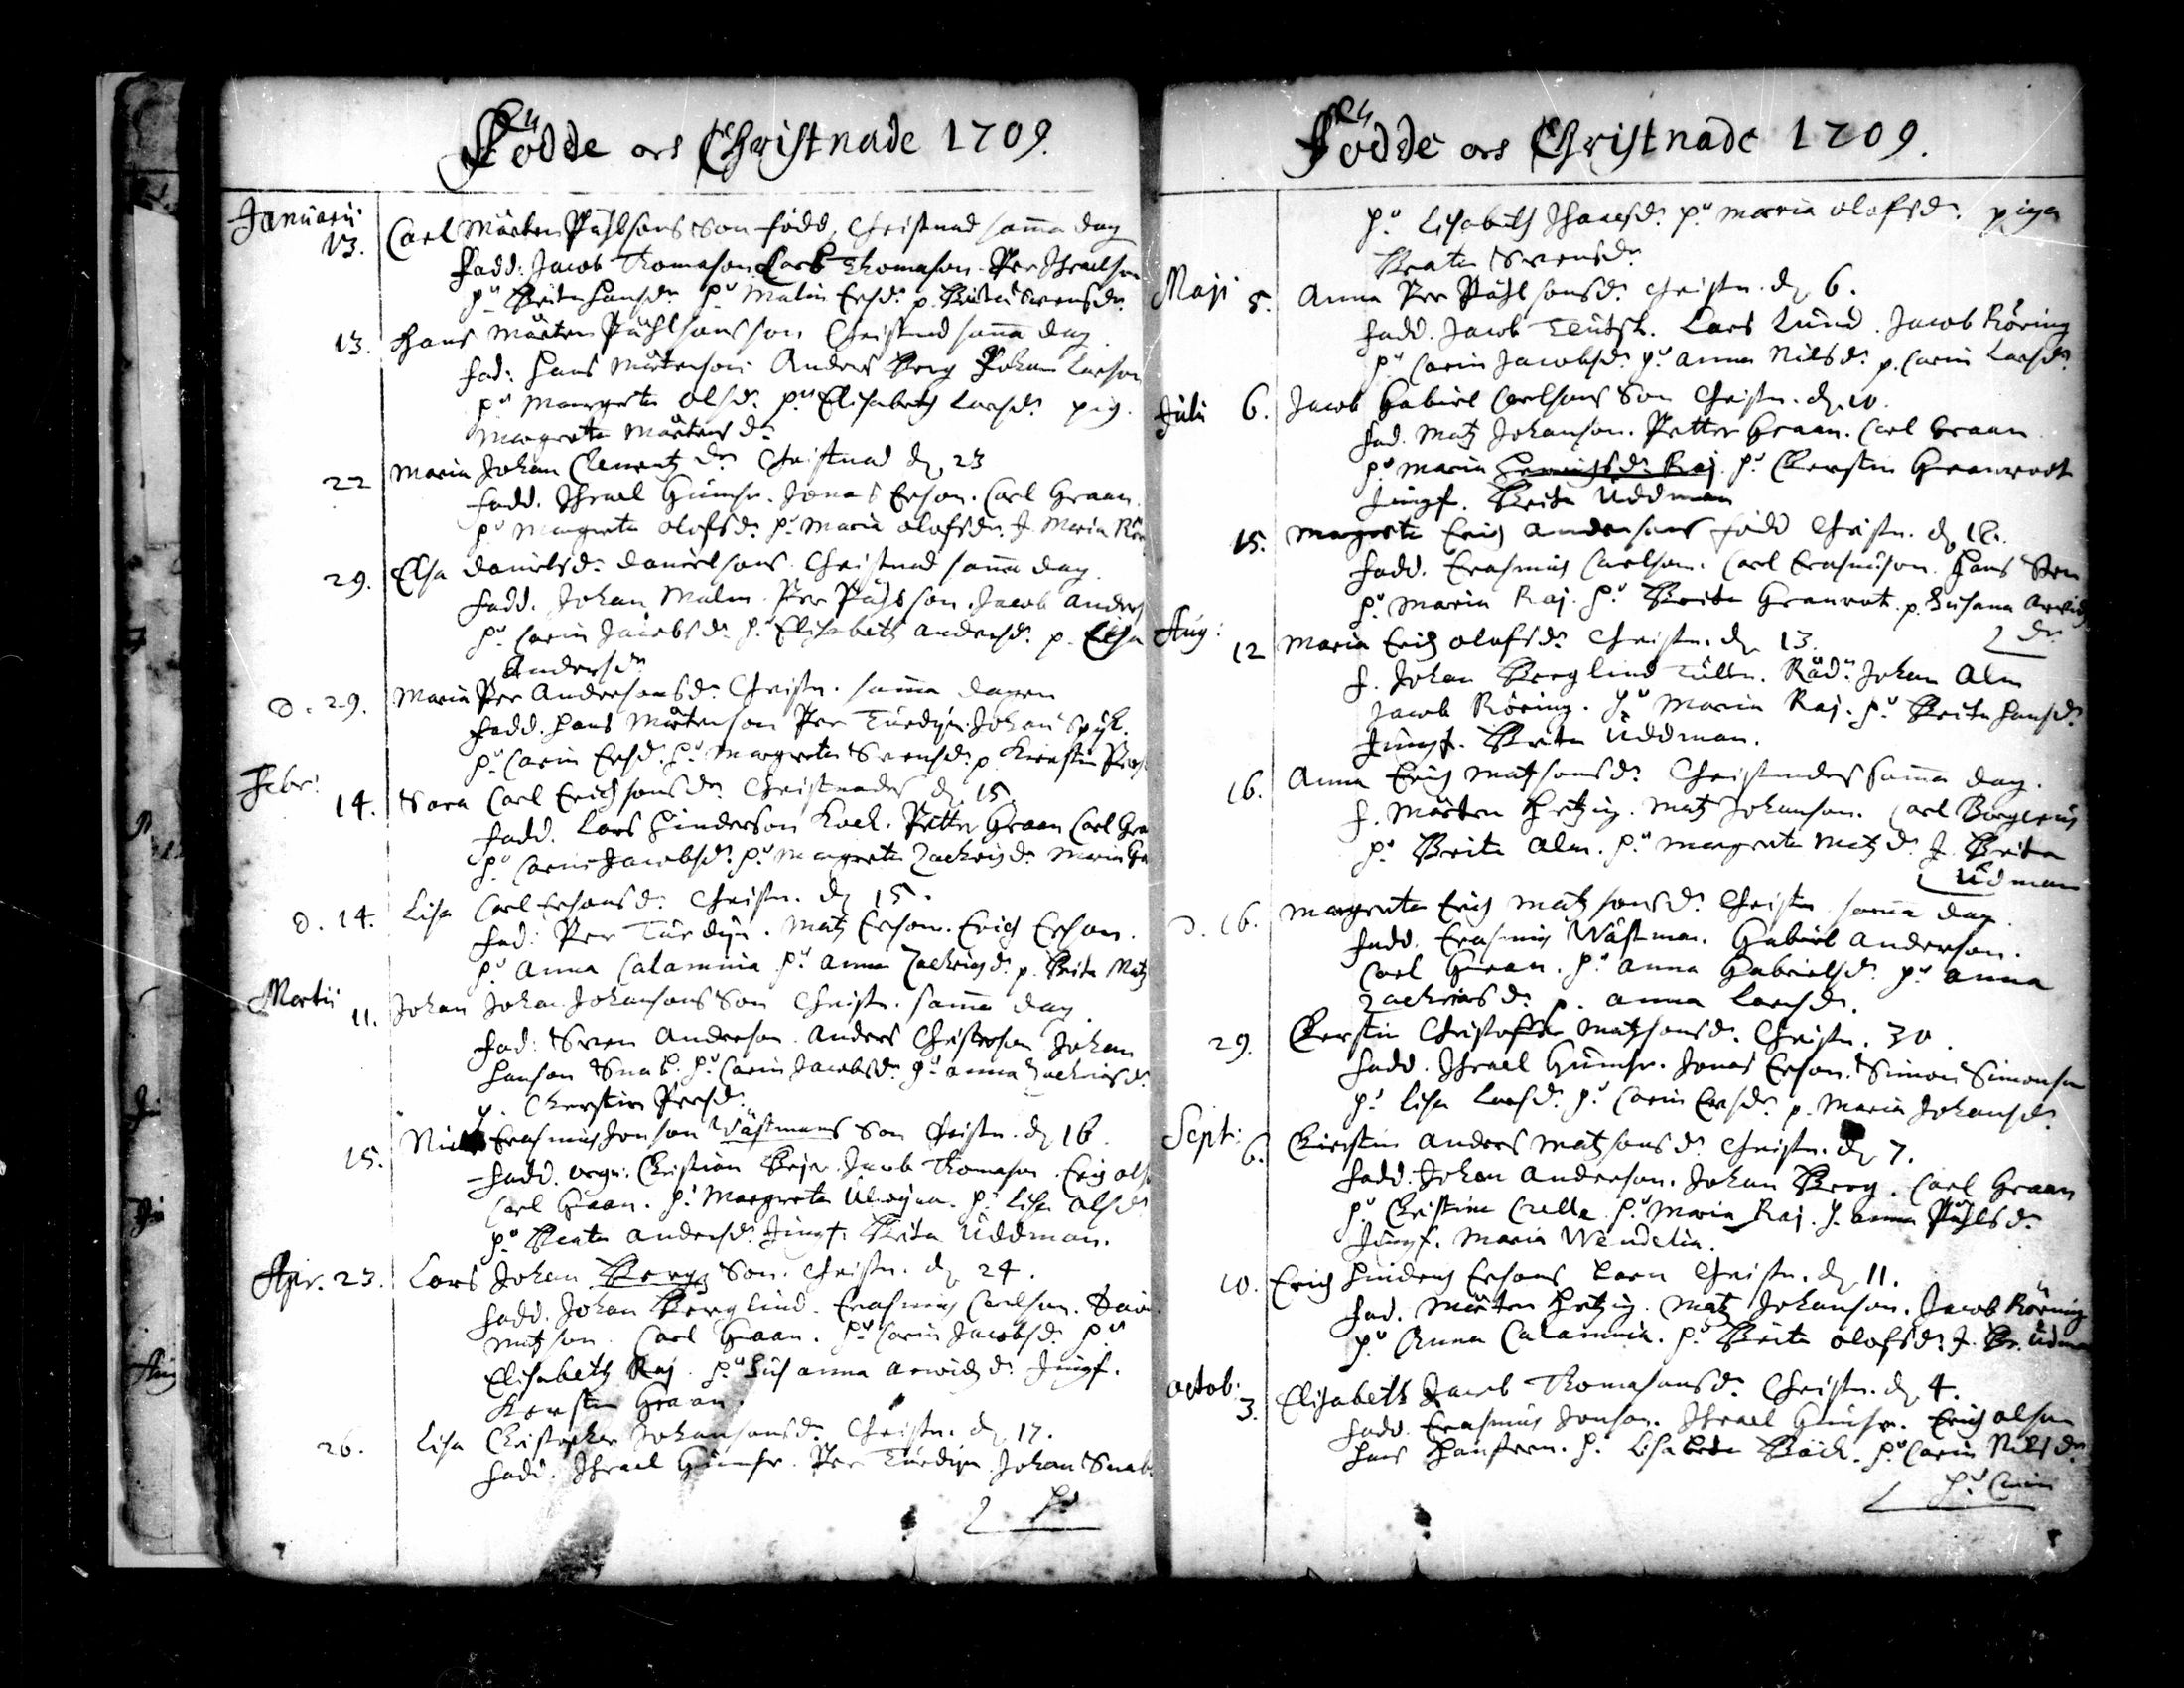 Födde och Christnade 1709.
Januarii
13. Carl Mårten Påhlsons Son född, Christnad sama dag
Fadd: Jacob Thomason Lars Thomason. Per Israelson
hu Brita Hansdr hu Malin Ersdr p. Svensdr
13. Hans Mårten Påhlsons son Christnad sama dag
Fad: Hans Mårtenson Anders Berg Johan Larson
hu Margreta Olsdr hu Elisabeth Larsdr pig.
Margreta Mårtensdr
22 Maria Johan Clementz dr Christnad d. 23
Fadd. Israel Jonas Erson. Carl Graan.
hu Margreta Olofsdr hu Maria Olofsdr J. Maria
29. Elsa Danielsdr Danielsons Christnad sama dag
Fadd. Johan Malm. Per Påhlson. Jacob Anders
hu Carin Jacobsdr hu Elisabeth Andersdr p. Elsa
Andersdr
D. 29. Maria Per Andersonsdr Christn. sama dagen
Fadd. Hans Mårtenson Per Turdijn Johan Spijk.
hu Carin Ersdr hu Margreta Svensdr p Kierstin
Febr:
14. Sara Carl Erichsonsdr Christnades d. 15
Fadd. Lars Hinderson Kock. Petter Graan Carl Gra
hu Carin Jacobsdr hu Margreta Zachrisdr Maria
D. 14. Lisa Carl Ersonsdr Christn. d. 15.
Fad: Per Turdijn. Matz Erson. Erich Erson.
hu Anna Calamnia hu Anna Zachrisdr p. Brita Matz
Martii
11. Johan Johan Johansons Son Christn. sama dag
Fad: Sven Anderson. Anders Christerson Johan
Hanson Snab. hu Carin Jacobsdr hu Anna Zachrisdr
p. Kerstin Persdr
15. Erasmus Jonson Wästmans Son Christn. d. 16
Fadd. Christian Jacob Thomason. Erich
Carl Graan. hu Margreta hu Lisa Olsdr
hu Beata Andersdr Jungf. Brita Uddman.
Apr. 23. Lars Johan Bergz Son. Christn. d. 24.
Fadd. Johan Berglind. Erasmus Carlson.
Matzson. Carl Graan. hu Carin Jacobsdr hu
Elisabeth Raj. hu Susanna Arwidzdr Jungf.
Kerstin Graan.
26. Lisa Christopher Johansonsdr Christn. d. 17.
Fadd. Israel Per Turdijn Johan Snab
hu
Födde och Christnade 1709.
hu Lisabeth Isaacsdr hu Maria Olofsdr piga
Beata Svensdr
Maji 5. Anna Per Påhlsonsdr Christn. d. 6.
Fadd. Jacob Lars Lund. Jacob Röring
hu Carin Jacobsdr hu Anna Nilsdr p. Carin Larsdr
Juli 6. Jacob Gabriel Carlsons Son Christn. d. 10.
Fad. Matz Johanson. Petter Graan. Carl Graan
hu Maria Raj. hu Kerstin Granroot
Jungf. Brita Uddman
15. Margreta Erich Andersons född Christn. d. 18.
Fadd. Erasmus Carlson. Carl Erasmuson. Hans
hu Maria Raj. hu Brita Granrot. p. Susana Arwidz
dr
Aug:
12 Maria Erich Olofsdr Christn. d. 13.
F. Johan Berglind Johan Alm
Jacob Röring. hu Maria Raj. hu Brita Hansdr
Jungf. Brita Uddman.
16. Anna Erich Matzsonsdr Christnades sama dag.
F. Mårten Hertzig. Matz Johanson. Carl
hu Brita Alm. hu Margreta Matzdr J. Brita
Udman
D. 16. Margreta Erich Matzsonsdr Christn sama dag
Fadd. Erasmus Wästman. Gabriel Anderson.
Carl Graan. hu Anna Gabrielsdr hu Anna
Zachriasdr p. Anna Larsdr
29. Kerstin Christoffer Matzsonsdr Christn. 30.
Fadd. Israel Jonas Erson. Simon Simonson
hu Lisa Larsdr hu Carin Ersdr p. Maria Johansdr
Sept:
6. Kierstin Anders Matzsonsdr Christn. d. 7.
Fadd. Johan Anderson. Johan Berg. Carl Graan
hu Christina hu Maria Raj. h. Anna Påhlsdr
Jungf. Maria Wendelia.
10. Erich Hindrich Ersons Barn Christn. d. 11.
Fad. Mårten Hertzig. Matz Johanson. Jacob Röring
hu Anna Calamnia. hu Brita Olofsdr J. Br. Udman
Octob:
3. Elisabeth Jacob Thomasonsdr Christn. d. 4.
Fadd. Erasmus Jonson. Israel Erich Olson
hu Carin Nilsdr
hu Carin